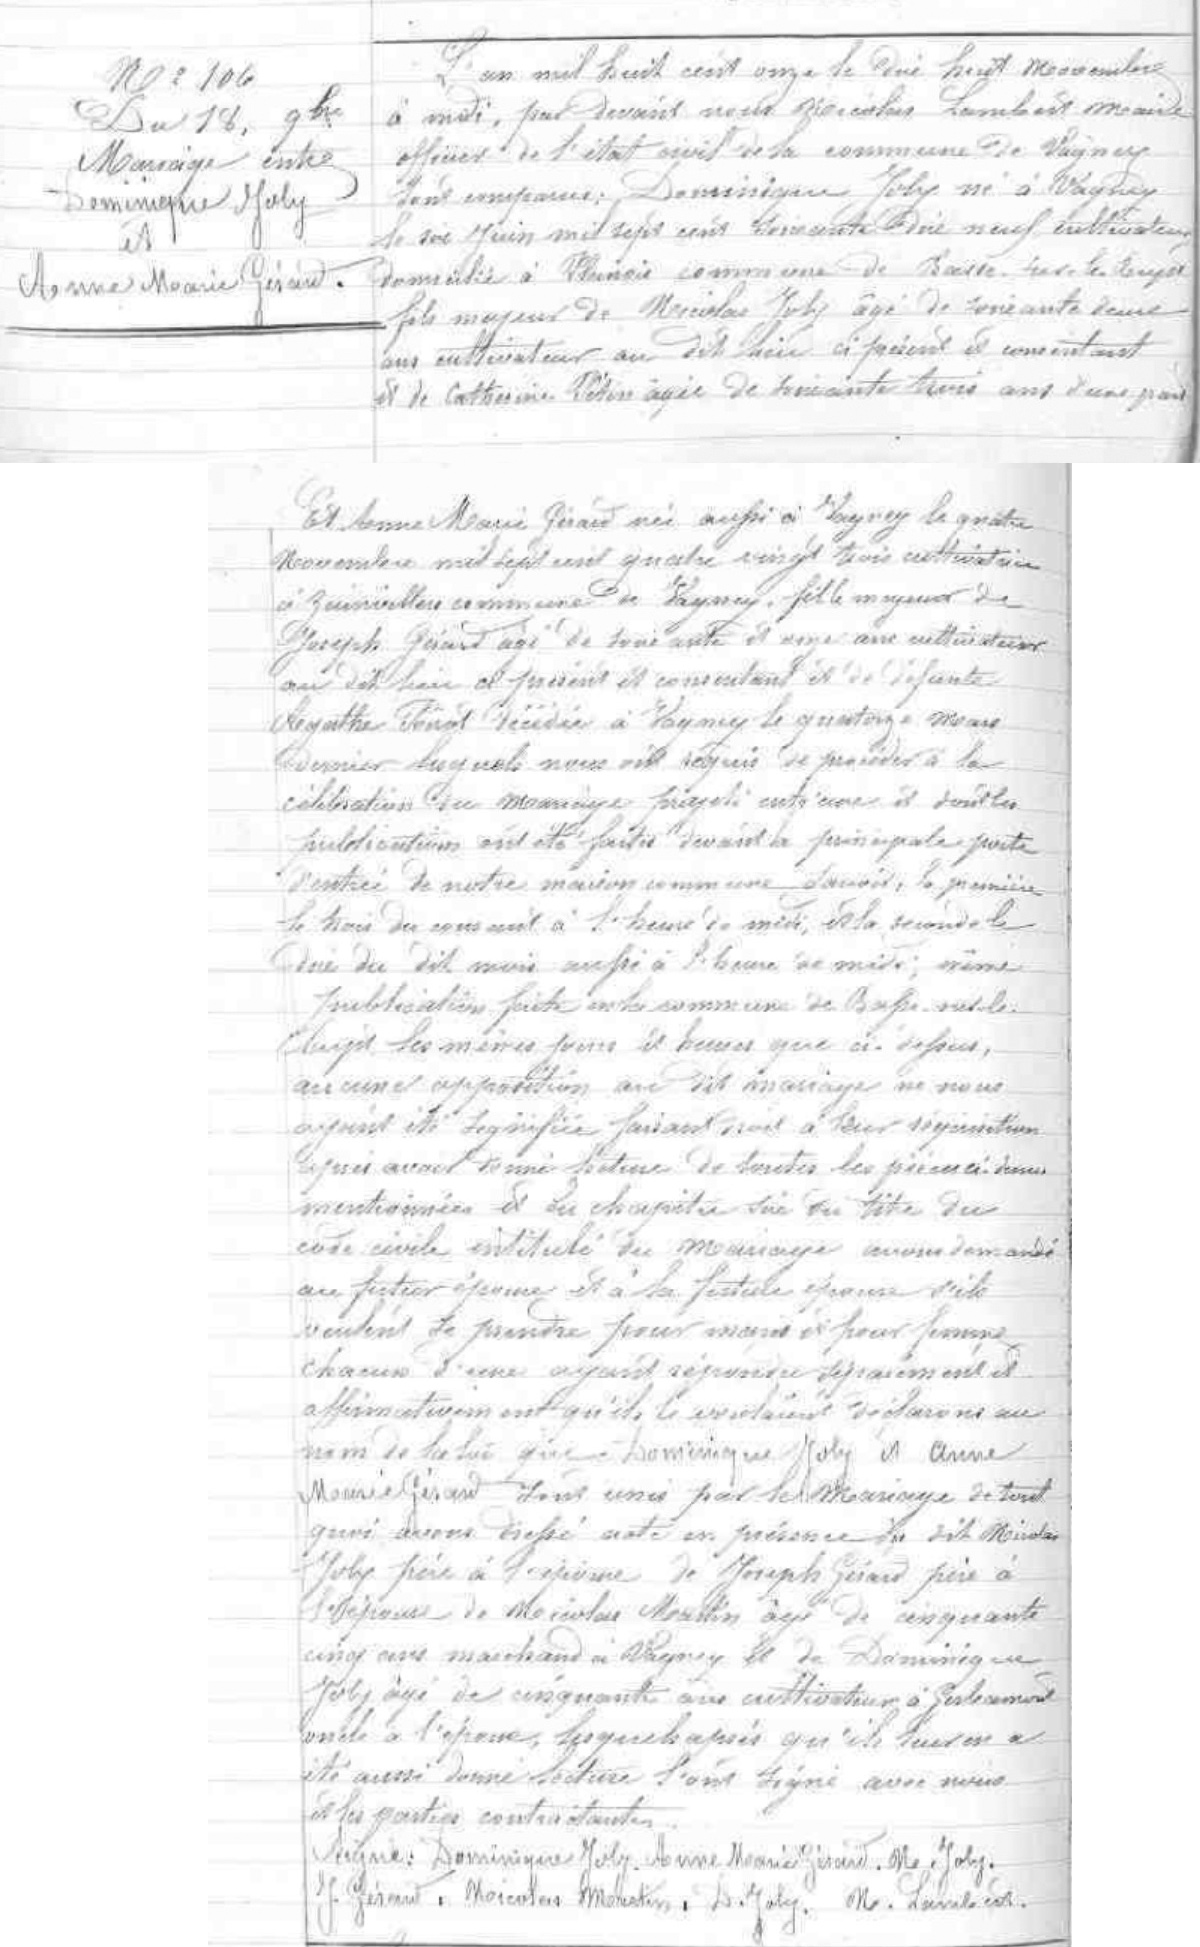 No 106
Du 18, 9bre
Mariage entre
Dominique Joly
et
Anne Marie Gérard.
L'an mil huit cent onze le dix huit Novembre
à midi, par devant nous Nicolas Lambert Maire
officier de l'état civil de la commune de Vagney
sont comparus: Dominique Joly né à Vagney
le six Juin mil sept cent soixante dix neuf cultivateur
domicilié à Planois commune de Basse-sur-le-Rupt
fils majeur de Nicolas Joly âgé de soixante deux
ans cultivateur au dit lieu ci présent et consentant
et de Catherine âgée de soixante trois ans d'une part
Et Anne Marie Gérard née aussi à Vagney le quatre
Novembre mil sept cent quatre vingt trois cultivatrice
à Zainvillers commune de Vagney, fille majeure de
Joseph Gérard âgé de soixante et onze ans cultivateur
au dit lieu ci présent et consentant et de défunte
Agathe décédée à Vagney le quatorze Mars
dernier lesquels nous ont requis de procéder à la
célébration du Mariage projeté entr'eux et dont les
publications ont été faites devant la principale porte
d'entrée de notre maison commune Savoir, la première
le trois du courant à l'heure de midi, et la seconde le
dix du dit mois aussi à l'heure de midi; même
publication faite en la commune de Basse-sur-le-
Rupt les mêmes jours et heures que ci-dessus,
aucune opposition au dit mariage ne nous
ayant été signifiée faisant droit à leur réquisition
après avoir donné lecture de toutes les pièces ci-dessus
mentionnées et du chapitre six du titre du
code civile intitulé du Mariage avons demandé
au futur époux et à la future épouse s'ils
veulent se prendre pour mari et pour femme
chacun d'eux ayant répondu séparément et
affirmativement qu'ils le voulaient déclarons au
nom de la loi que Dominique Joly et Anne
Marie Gérard sont unis par le Mariage de tout
quoi avons dressé acte en présence du dit Nicolas
Joly père à l'époux de Joseph Gérard père à
l'épouse de Nicolas Martin âgé de cinquante
cinq ans marchand à Vagney et de Dominique
Joly âgé de cinquante ans cultivateur à Gerbamont
oncle à l'époux, lesquels après qu'il leur en a
été aussi donné lecture l'ont signé avec nous
et les parties contractantes.
Signé: Dominique Joly. Anne Marie Gérard. N. Joly.
J. Gérard. Nicolas Martin. D. Joly. N. Lambert.